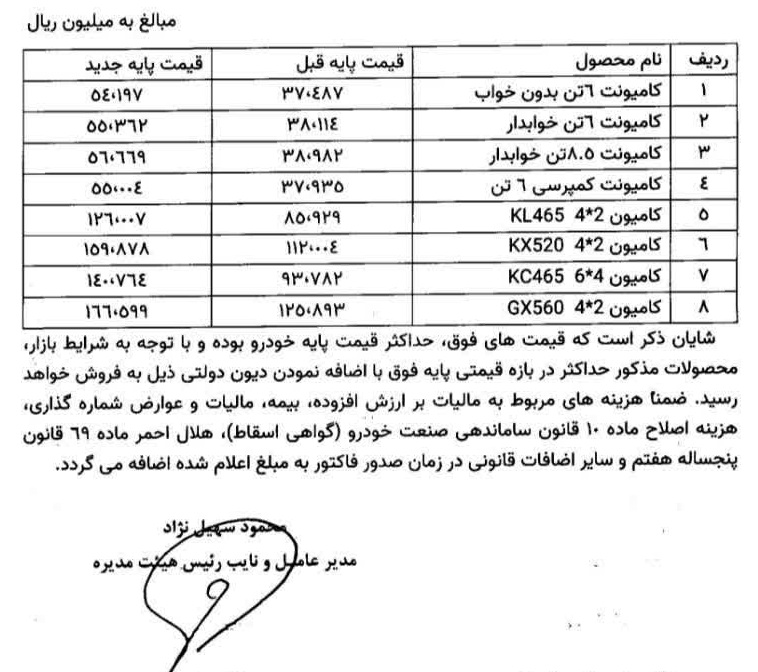 مبالغ به میلیون ریال
ردیف	نام محصول	قیمت پایه قبل	قیمت پایه جدید
١	کامیونت ٦تن بدون خواب	٣٧٠٤٨٧	٥٤٠١٩٧
٢	کامیونت ٦تن خوابدار	٣٨٠١١٤	٥٥٠٣٦٢
٣	کامیونت ٨.٥تن خوابدار	٣٨٠٩٨٢	٥٦٠٦٦٩
٤	کامیونت کمپرسی ٦ تن	٣٧٠٩٣٥	٥٥٠٠٠٤
٥	کامیون KL465 4*2	٨٥٠٩٢٩	١٢٦٠٠٠٧
٦	کامیون KX520 4*2	١١٢٠٠٠٤	١٥٩٠٨٧٨
٧	کامیون KC465 6*4	٩٣٠٧٨٢	١٤٠٠٧٦٤
٨	کامیون GX560 4*2	١٢٥٠٨٩٣	١٦٦٠٥٩٩
شایان ذکر است که قیمت های فوق، حداکثر قیمت پایه خودرو بوده و با توجه به شرایط بازار،
محصولات مذکور حداکثر در بازه قیمتی پایه فوق با اضافه نمودن دیون دولتی ذیل به فروش خواهد
رسید. ضمناً هزینه های مربوط به مالیات بر ارزش افزوده، بیمه، مالیات و عوارض شماره گذاری،
هزینه اصلاح ماده ١٠ قانون ساماندهی صنعت خودرو (گواهی اسقاط)، هلال احمر ماده ٦٩ قانون
پنجساله هفتم و سایر اضافات قانونی در زمان صدور فاکتور به مبلغ اعلام شده اضافه می گردد.
محمود سهیل نژاد
مدیر عامل و نایب رئیس هیئت مدیره